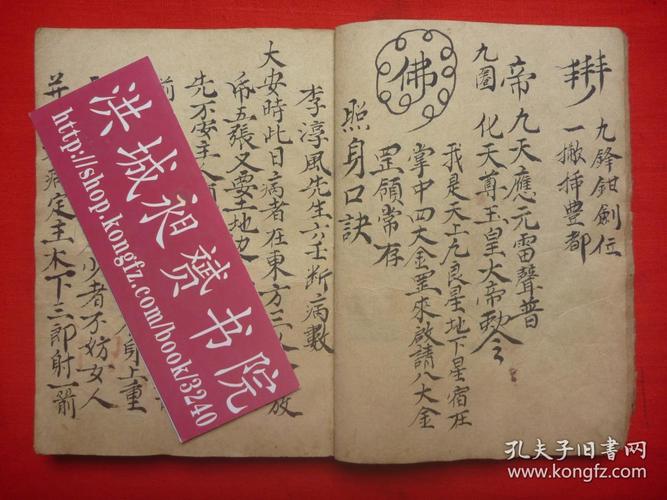 九鋒鉗劍位
一撇揷豊都
帝九天應元雷聲普
九圖化天尊玉皇大帝勅令
佛
我是天上九良星地下星宿在
掌中四大金罡來啟請八大金
罡領常存
照身口訣
李淳風先生六壬斷病數
大安時此日病者在東方三
放
帋五張又要土地
先不安主人
前
身上重
少者不妨女人
病定主木下三郎射一箭
洪城昶赟书院
http://shop.kongfz.com/book/3240
孔夫子旧书网
www.kongfz.com